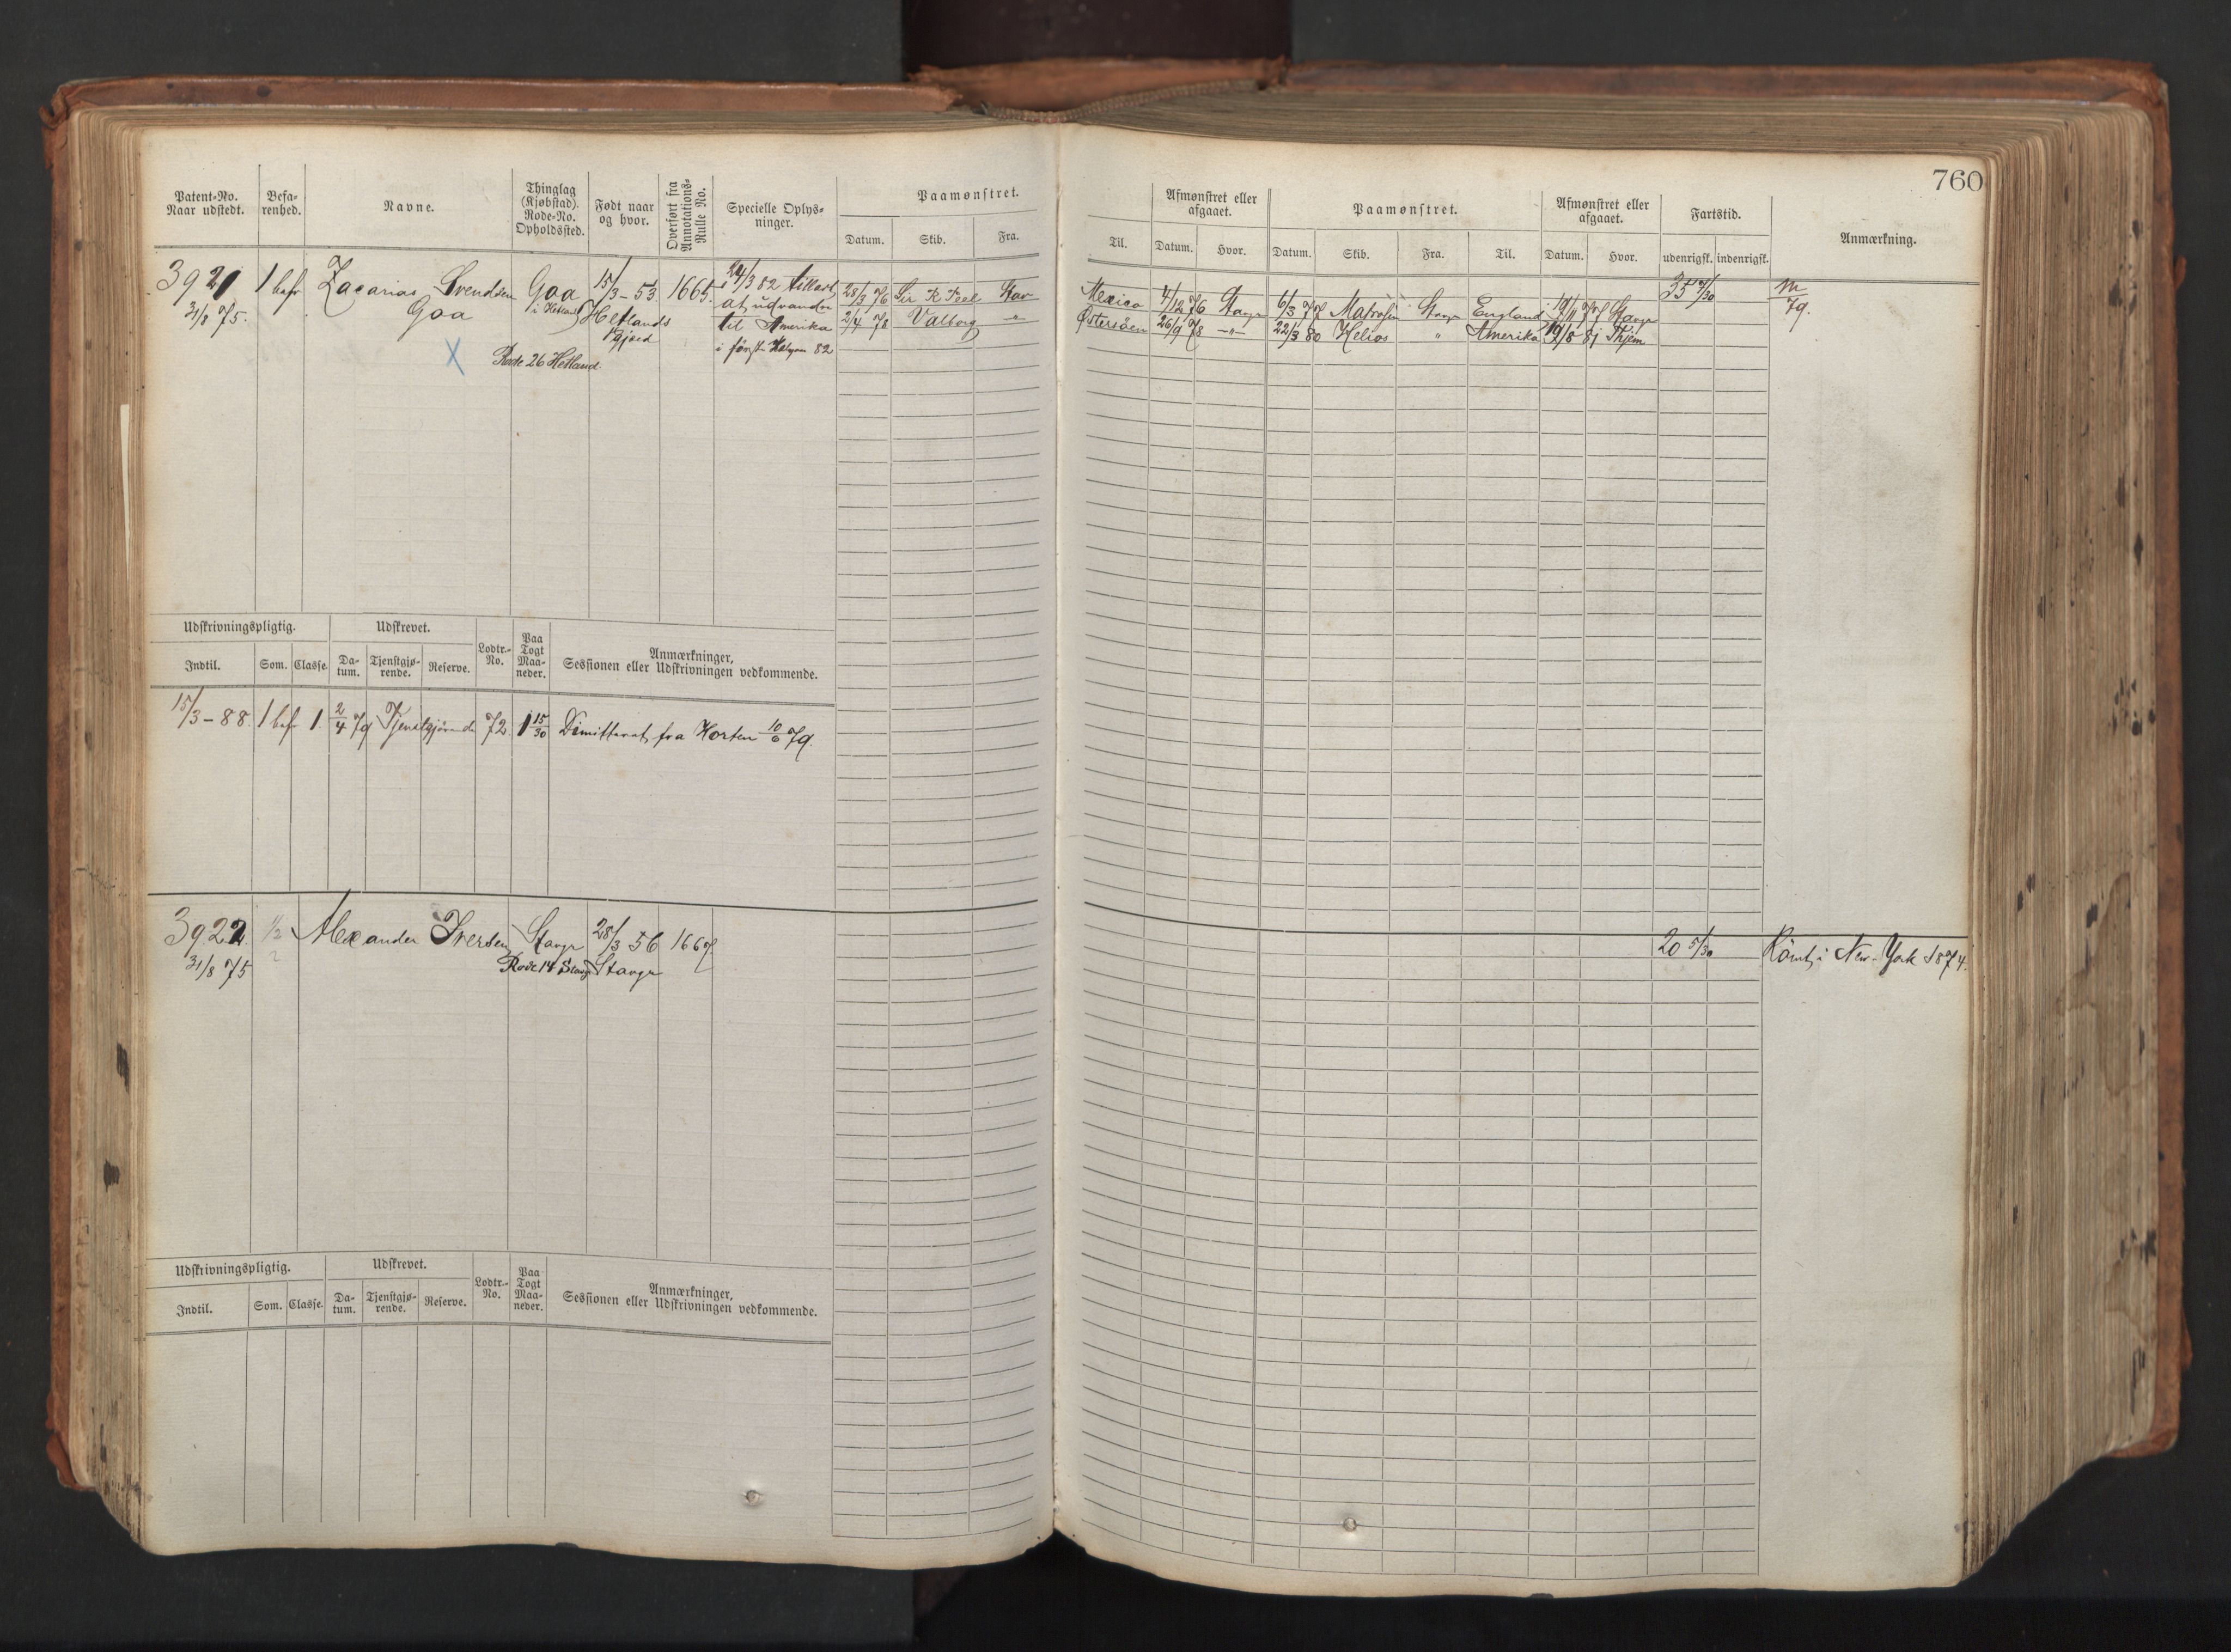 760
Patent-No. Naar udstedt.
Befa-renhed.
Navne.
Thinglag (Kjøbstad). Rode-No. Opholdssted.
Født naar og hvor.
Overført fra Annotations-Rulle No.
Specielle Oplys-ninger.
Paamønstret.
Datum. Skib. Fra.
Til.
Afmønstret eller afgaaet.
Datum. Hvor.
Paamønstret.
Datum. Skib. Fra. Til.
Afmønstret eller afgaaet.
Datum. Hvor.
Fartstid.
udenrigsk. indenrigsk.
Anmærkning.
3921 1 bef Zacarias Svendsen Goa 15/3-53. 1665. 24/3 82 tillast
31/8 75. Goa i Hetland Hetlands at udvandre
Pgjæld til Amerika
X Rode 26 Hetland i 82
28/3 76 Sir R Peel Stav
2/4 78 Valborg "
Mexico 4/12 76 Stavgr 6/3 77 Stavgr England 19/11 77 Stavgr 35 /30 m
Østersøen 26/9 78 -"- 22/3 80 Helios " Amerika 19/8 81 Thjem 79.
Udskrivningspligtig. Udskrevet. Lodtr.-No. Paa Togt Maa-neder. Anmærkninger,
Indtil. Søm. Classe. Da-tum. Tjenstgjø-rende. Reserve. Sessionen eller Udskrivningen vedkommende.
15/3-88. 1 bef 1 2/4 79 Tjenstgjørende 72 1 15/30 Dimitteret fra Horten 10/6 79.
3922. 1/2 Alexander Iversen Stavgr 28/3 56 1667
31/8 75 2 Rode 14 Stavgr Stavgr
20 5/30 Römt i New-York 1874.
Udskrivningspligtig. Udskrevet. Lodtr.-No. Paa Togt Maa-neder. Anmærkninger,
Indtil. Søm. Classe. Da-tum. Tjenstgjø-rende. Reserve. Sessionen eller Udskrivningen vedkommende.